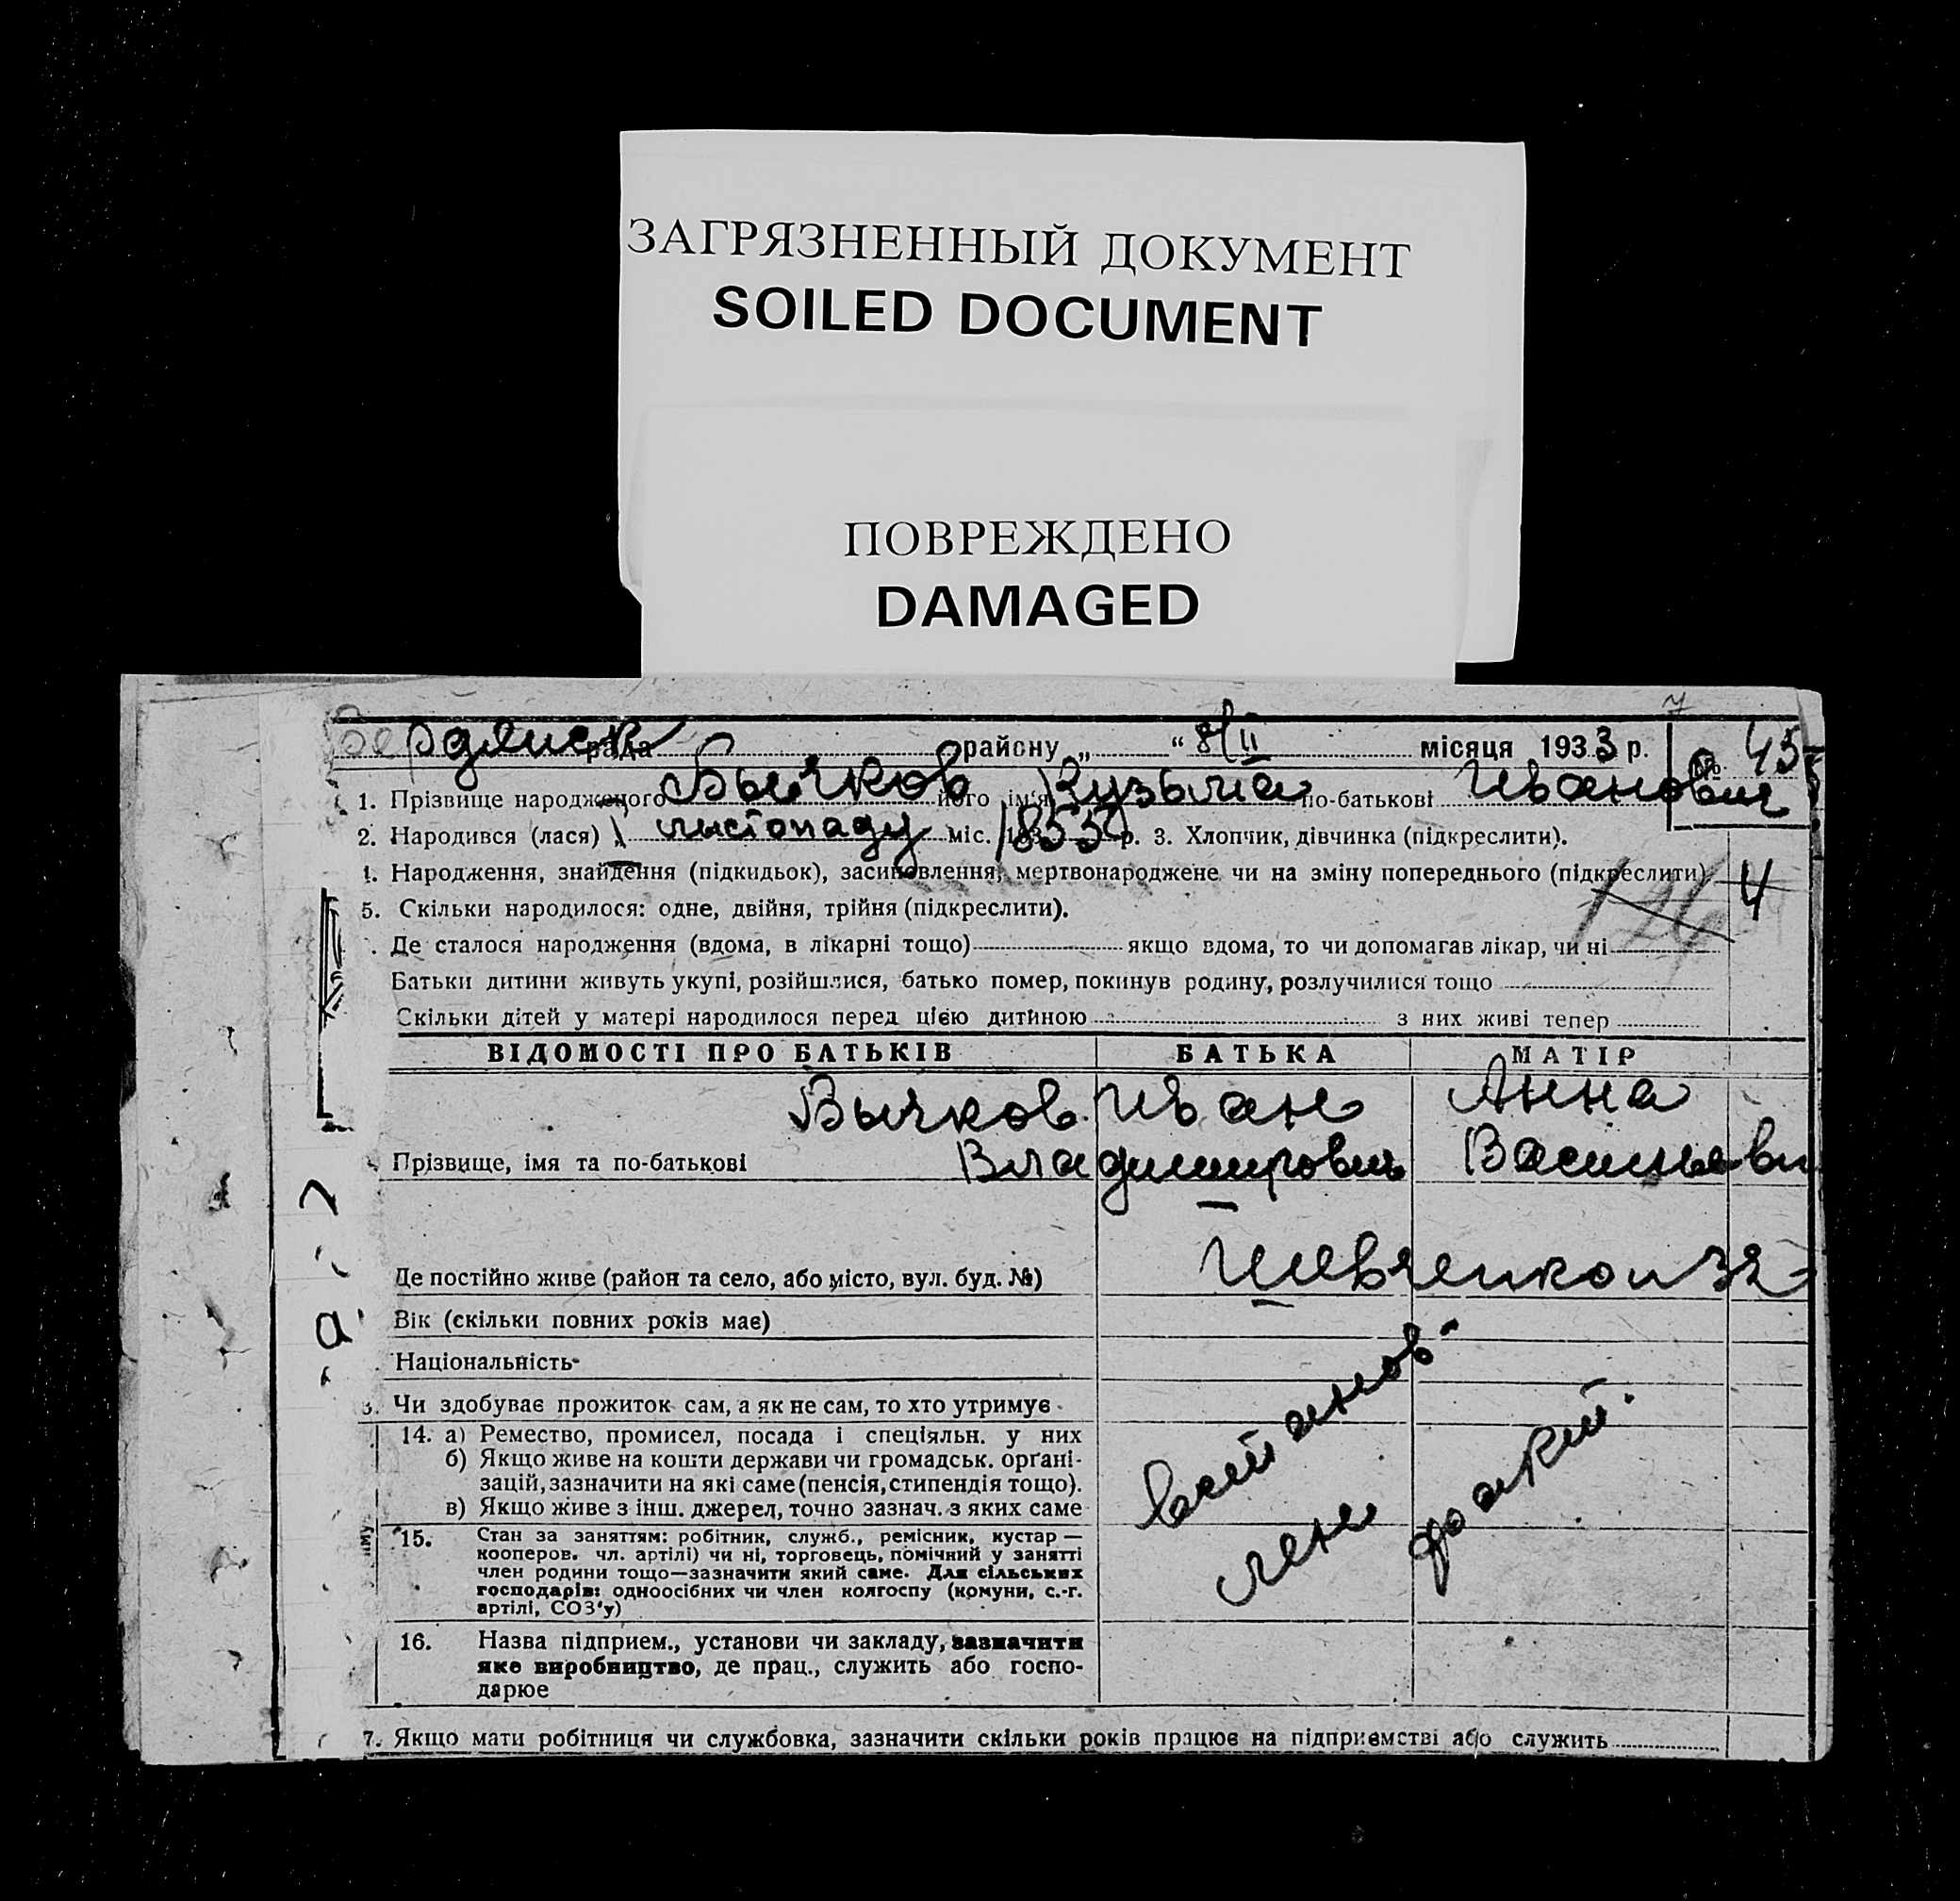 ЗАГРЯЗНЕННЫЙ ДОКУМЕНТ
SOILED DOCUMENT
ПОВРЕЖДЕНО
DAMAGED
Бердянск рада району „ “ 8/II місяця 1933 р. № 45
1. Прізвище народженого Бычков його ім'я Кузьма по-батькові Иванович
2. Народився (лася) „1 листопаду міс. 1855 р. 3. Хлопчик, дівчинка (підкреслити).
4. Народження, знайдення (підкидьок), засиновлення, мертвонароджене чи на зміну попереднього (підкреслити) 4
5. Скільки народилося: одне, двійня, трійня (підкреслити). 126
Де сталося народження (вдома, в лікарні тощо) якщо вдома, то чи допомагав лікар, чи ні
Батьки дитини живуть укупі, розійшлися, батько помер, покинув родину, розлучилися тощо
Скільки дітей у матері народилося перед цією дитиною з них живі тепер
ВІДОМОСТІ ПРО БАТЬКІВ БАТЬКА МАТІР
Бычков Иван Анна
Прізвище, імя та по-батькові Владимирович Васильевн
Де постійно живе (район та село, або місто, вул. буд. №) 32
Вік (скільки повних років має)
Національність
3. Чи здобуває прожиток сам, а як не сам, то хто утримує
14. а) Ремество, промисел, посада і спеціяльн. у них
б) Якщо живе на кошти держави чи громадськ. орґані-
зацій, зазначити на які саме (пенсія, стипендія тощо).
в) Якщо живе з інш. джерел, точно зазнач. з яких саме
встанов-
лене факт.
15. Стан за заняттям: робітник, служб., ремісник, кустар —
кооперов. чл. артілі) чи ні, торговець, помічний у занятті
член родини тощо—зазначити який саме. Для сільських
господарів: одноосібних чи член колгоспу (комуни, с.-г.
артілі, СОЗ'у)
16. Назва підприєм., установи чи закладу, зазначити
яке виробництво, де прац., служить або госпо-
дарює
7. Якщо мати робітниця чи службовка, зазначити скільки років працює на підприємстві або служить